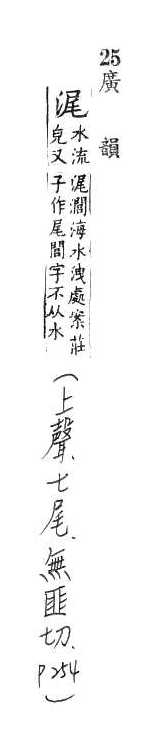 25 廣韻
浘
水流
皃又
浘澗海水洩處案莊
子作尾間字不从水
(上聲、七尾、無匪切、P254)